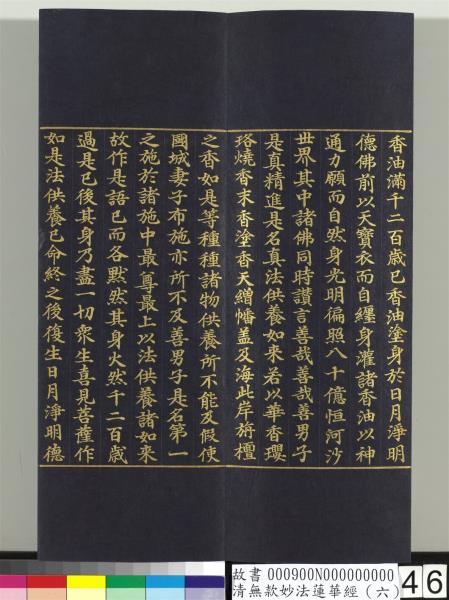 香油滿千二百歲已香油塗身於日月淨明
德佛前以天寶衣而自纏身灌諸香油以神
通力願而自然身光明徧照八十億恒河沙
世界其中諸佛同時讚言善哉善哉善男子
是真精進是名真法供養如來若以華香瓔
珞燒香末香塗香天繒幡蓋及海此岸旃檀
之香如是等種種諸物供養所不能及假使
國城妻子布施亦所不及善男子是名第一
之施於諸施中最尊最上以法供養諸如來
故作是語已而各默然其身火然千二百歲
過是已後其身乃盡一切衆生喜見菩薩作
如是法供養已命終之後復生日月淨明德
故書 000900N000000000
清無款妙法蓮華經（六）
46